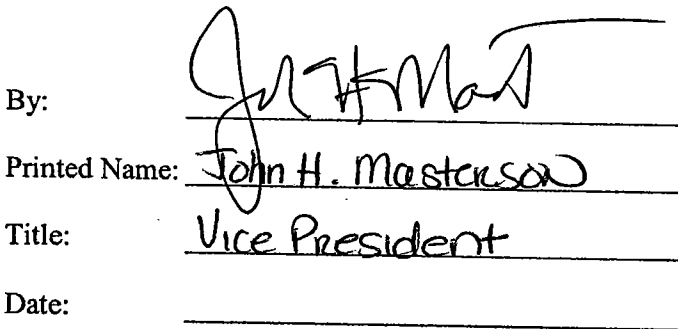 By:
Printed Name: John H. Masterson
Title: Vice President
Date: